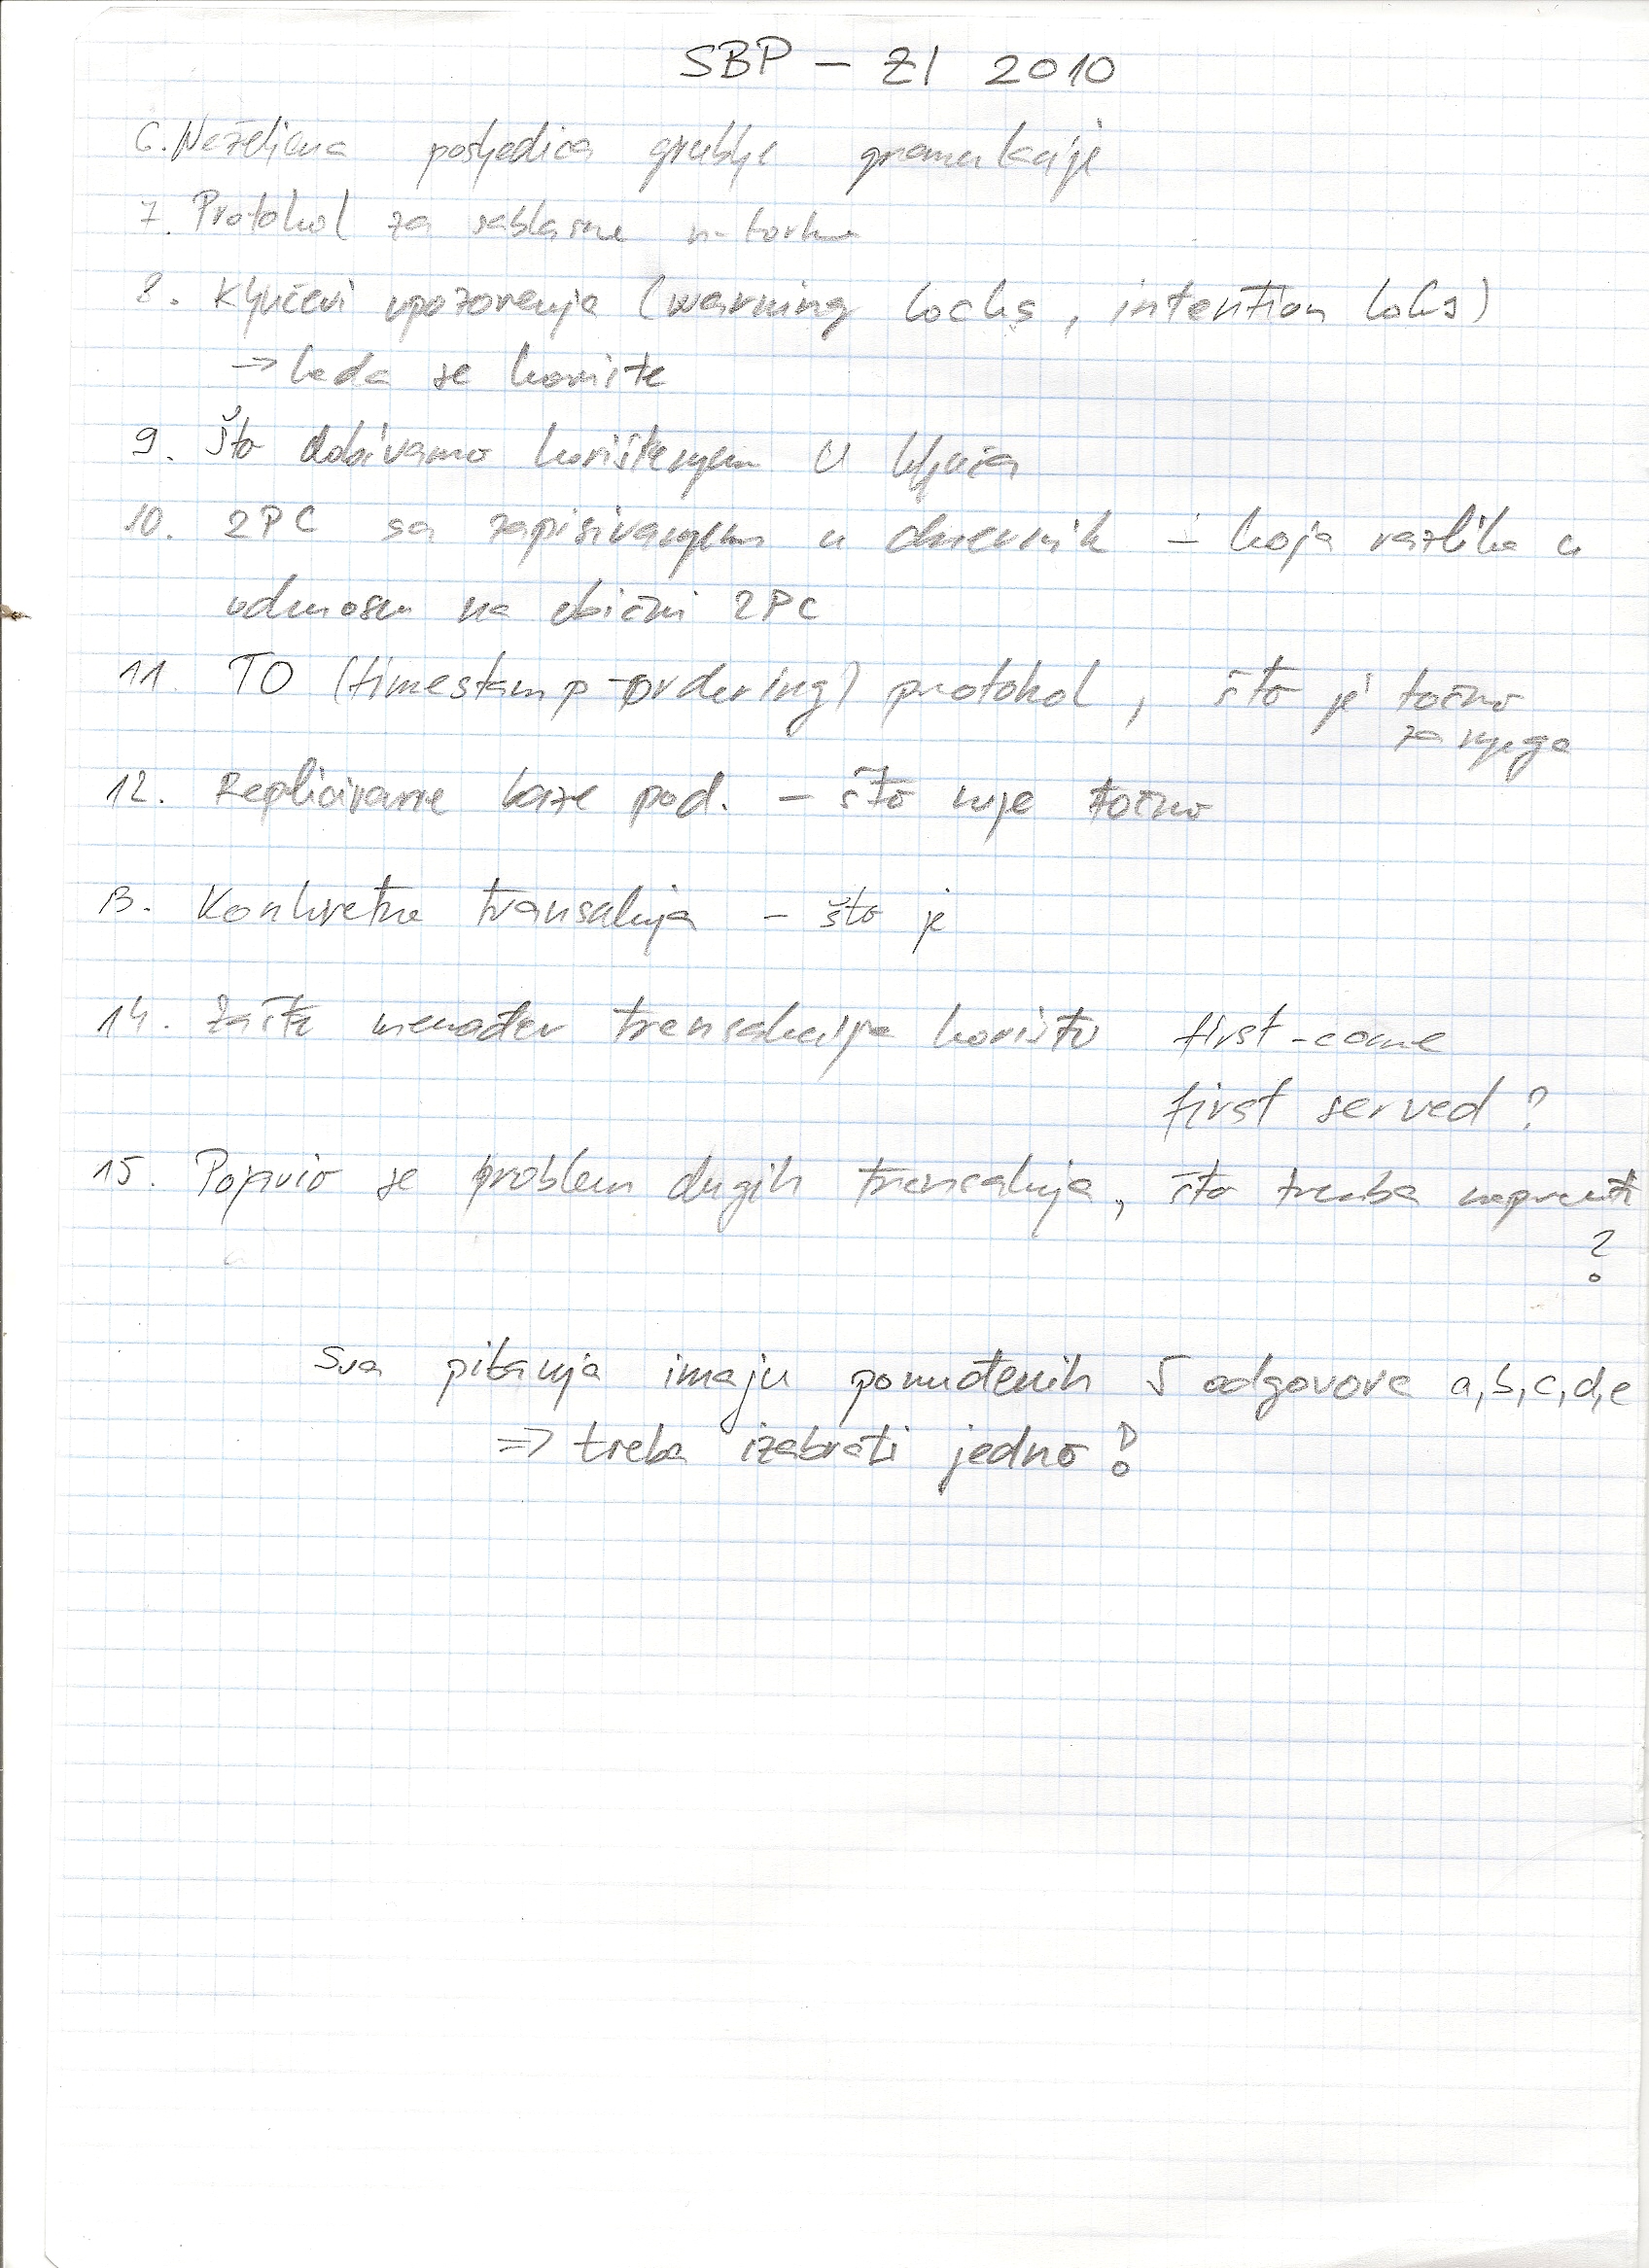 SBP - ZI 2010
6. Neželjena posljedica grublje granulacije
7. Protokol za sablasne n-torke
8. Ključevi upozorenja (warning locks, intention loks)
→ kada se koriste
9. Što dobivamo korištenjem U ključa
10. 2PC sa zapisivanjem u dnevnik - koja razlika u
odnosu na obični 2PC
11. TO (timestamp-ordering) protokol, što je točno
za njega
12. Repliciranje baze pod. - što nije točno
13. Konkretna transakcija - što je
14. Zašto menađer transakcija koristi first-come
first served?
15. Pojavio se problem dugih transakcija, što treba napraviti
?
Sva pitanja imaju ponuđenih 5 odgovora a,b,c,d,e
⇒ treba izabrati jedno!